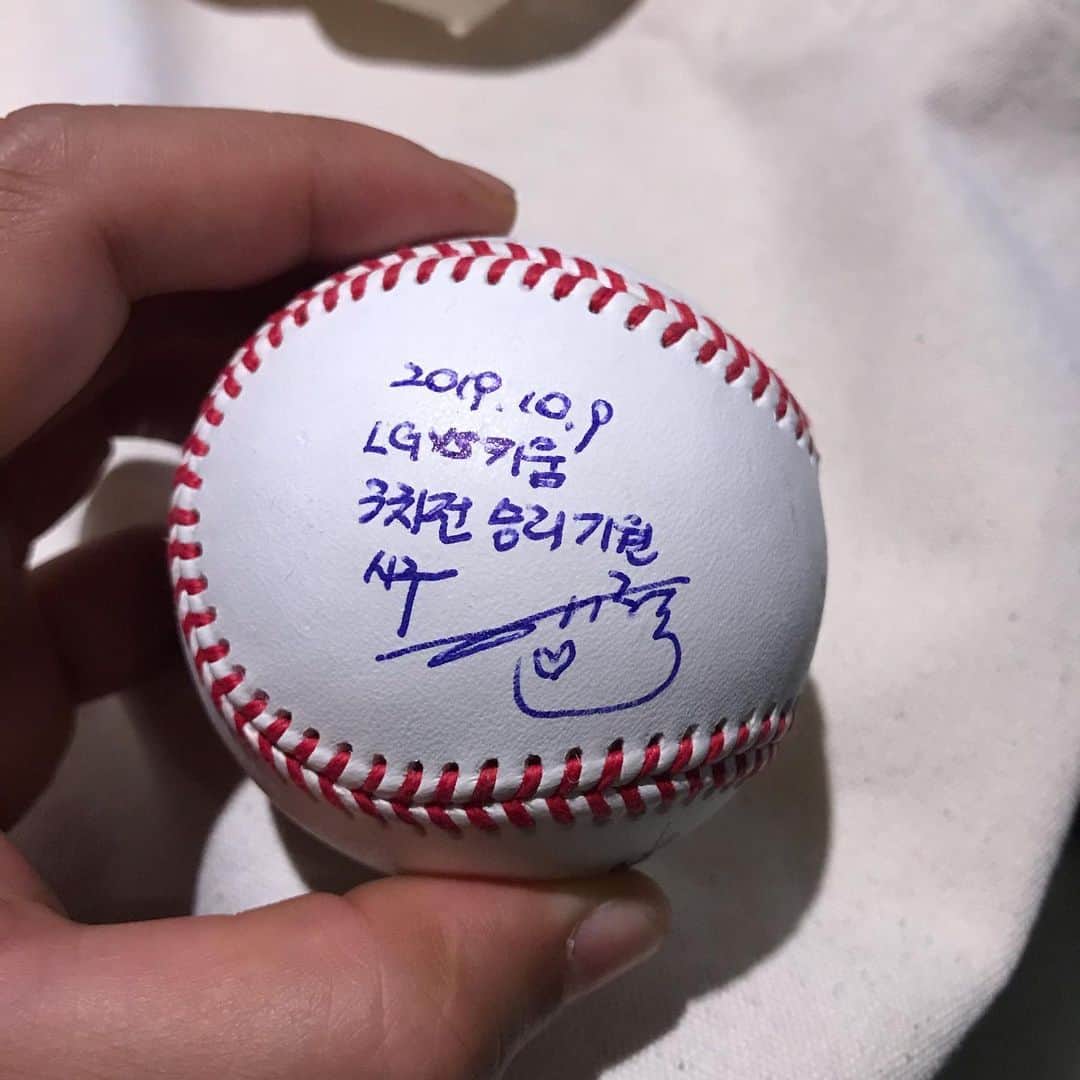 2019.10.9
LG vs 키움
3차전 승리기원
시구